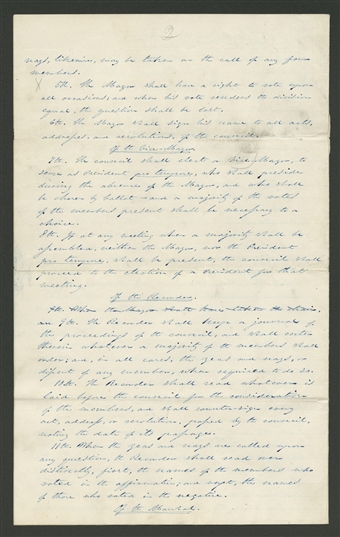 2
nays, likewise, may be taken on the call of any four
members.
5th. The Mayor shall have a right to vote upon
all occasions, and when his vote renders the division
equal, the question shall be lost.
6th. The Mayor shall sign his name to all acts,
addresses, and resolutions, of the council.
Of the Vice-Mayor
7th. The council shall elect a Vice-Mayor, to
serve as President pro tempore, who shall preside
during the absence of the Mayor, and who shall
be chosen by ballot and a majority of the votes
of the members present shall be necessary to a
choice.
8th. If at any meeting when a majority shall be
assembled, neither the Mayor, nor the President
pro tempore, shall be present, the council shall
proceed to the election of a President for that
meeting.
Of the Recorder.
9th. The Recorder shall keep a journal of
the proceedings of the council, and shall enter
therein whatever a majority of the members shall
order; and, in all cases, the yeas and nays, or
dissent of any member, when required to do so.
10th. The Recorder shall read whatever is
laid before the council for the consideration
of the members, and shall counter-sign every
act, address, or resolution, passed by the council,
noting the date of its passage.
11th. When the yeas and nays are called upon
any question, the Recorder shall read over
distinctly, first, the names of the members who
voted in the affirmative; and next, the names
of those who voted in the negative.
Of the Marshal.